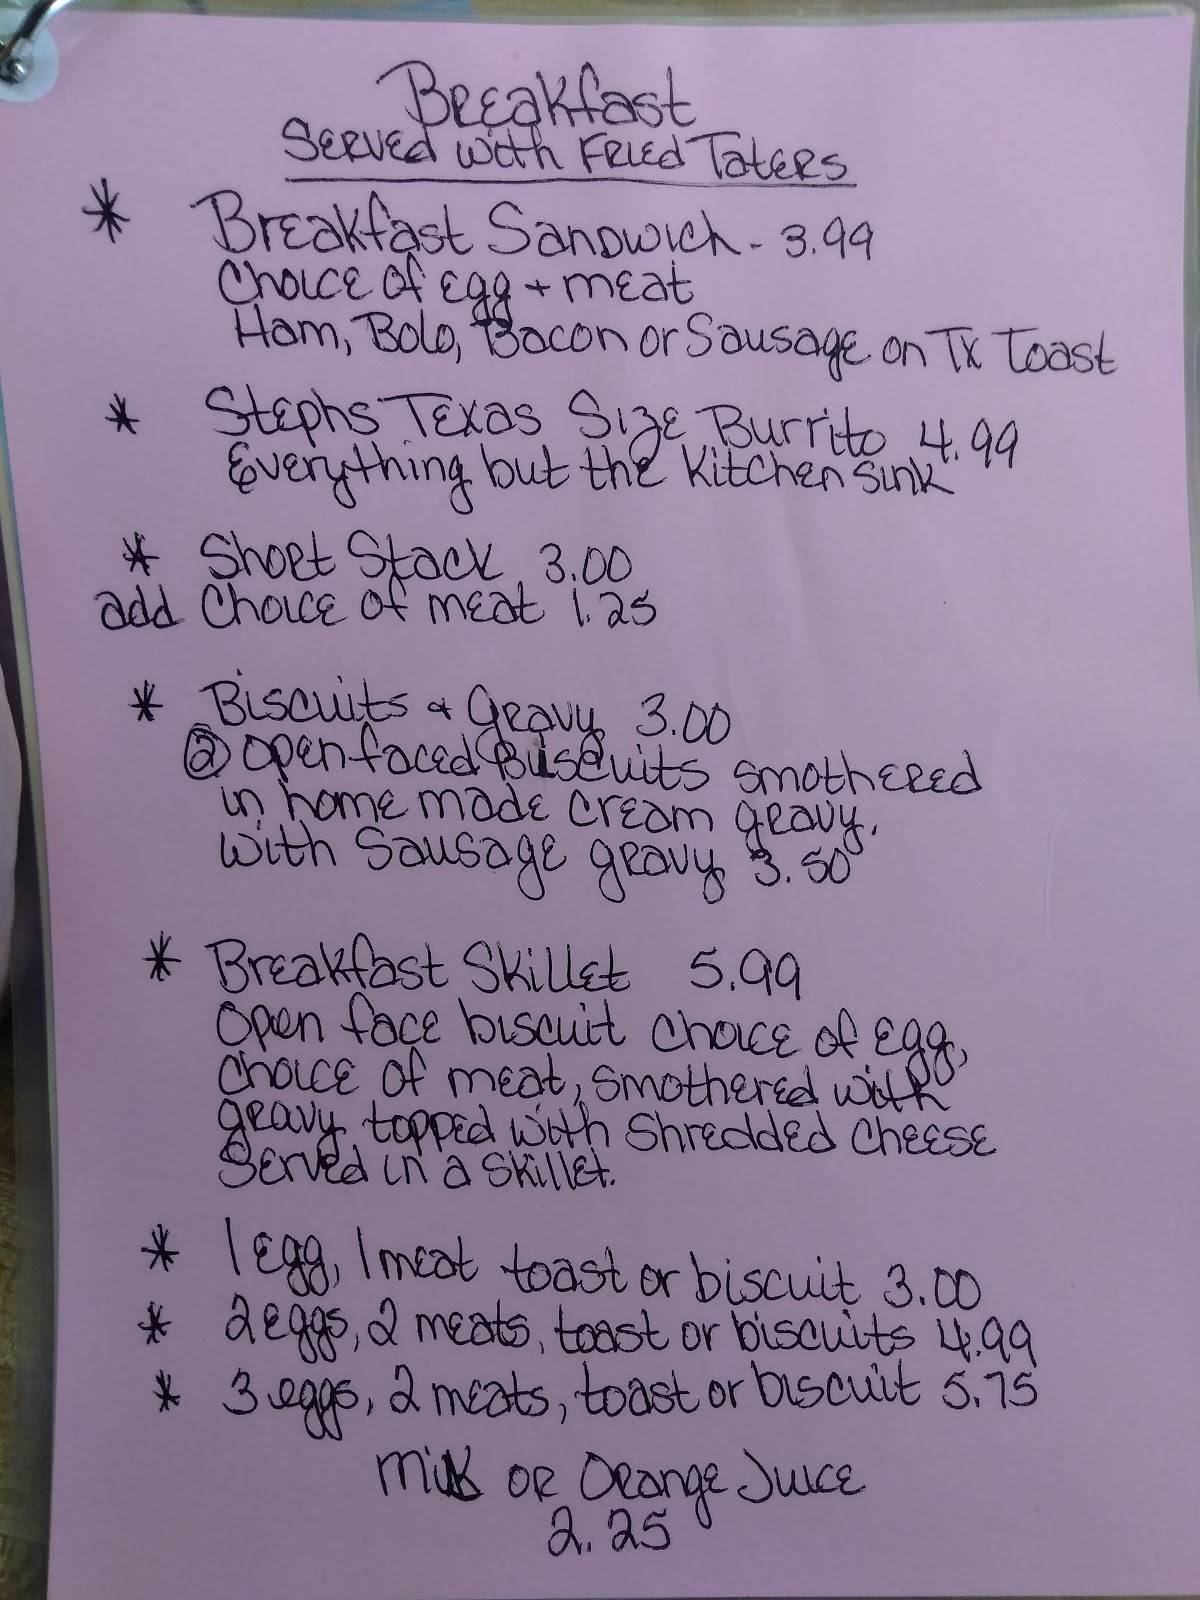 Breakfast
Served with Fried Taters
* Breakfast Sandwich - 3.99
Choice of egg + meat
Ham, Bolo, Bacon or Sausage on Tx Toast
* Stephs Texas Size Burrito 4.99
Everything but the Kitchen Sink
* Short Stack 3.00
add Choice of meat 1.25
* Biscuits & Gravy 3.00
② open faced Biscuits smothered
in home made cream gravy.
with Sausage gravy 3.50
* Breakfast Skillet 5.99
Open face biscuit choice of egg,
choice of meat, smothered with
gravy topped with shredded cheese
Served in a skillet.
* 1 egg, 1 meat toast or biscuit 3.00
* 2 eggs, 2 meats, toast or biscuits 4.99
* 3 eggs, 2 meats, toast or biscuit 5.75
Milk or Orange Juice
2.25